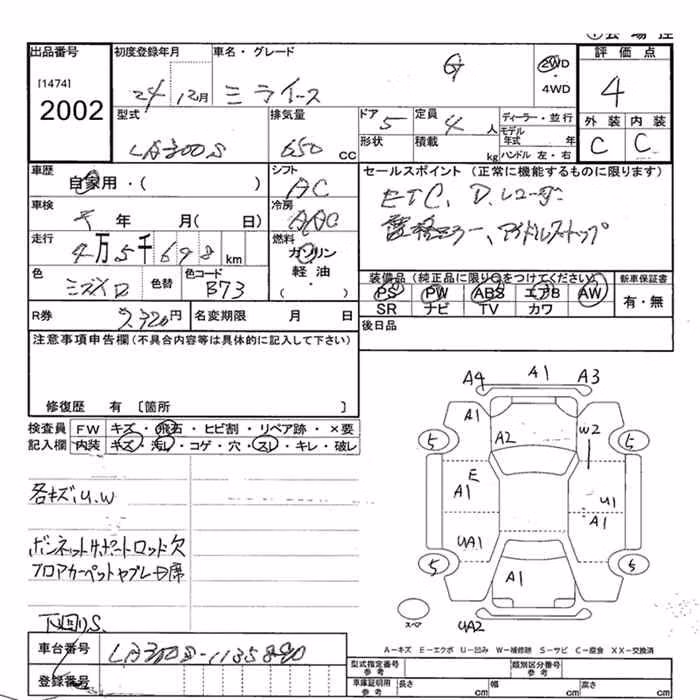 出品番号 初度登録年月 車名・グレード 評価点
[1474]
2002
24年 12月 ミライース G 2WD・4WD 4
型式 排気量 ドア 5 定員 4人 ディーラー・並行 外装 内装
LA300S 650cc 形状 積載 kg モデル年式 年 C C
ハンドル 左・右
車歴 自家用・( ) シフト AC
セールスポイント (正常に機能するものに限ります)
車検 年 月( 日) 冷房 AAC
ETC、D.レコーダー
走行 4万5千698km 燃料 ガソリン・軽油・( )
電格ミラー、アイドルストップ
色 色替 色コード B73
装備品 (純正品に限り○をつけてください) 新車保証書
PS PW ABS エアB AW 有・無
SR ナビ TV カワ
R券 円 名変期限 月 日
後日品
注意事項申告欄(不具合内容等は具体的に記入して下さい)
修復歴 有 [箇所 ]
検査員 FW キズ・飛石・ヒビ割・リペア跡・×要
記入欄 内装 キズ・汚レ・コゲ・穴・スレ・キレ・破レ
各キズ、U.W
ボンネットサポートロッド欠
フロアカーペットヤブレD席
下回りS.
A4 A1 A3
A1
A2 W2
5 5
E
A1 U1
A1
UA1
5 5
A1
スペア UA2
A-キズ E-エクボ U-凹み W-補修跡 S-サビ C-腐食 XX-交換済
車台番号
登録番号
型式指定番号 参考 類別区分番号 参考
車庫証明用 参考 長さ cm 幅 cm 高さ cm